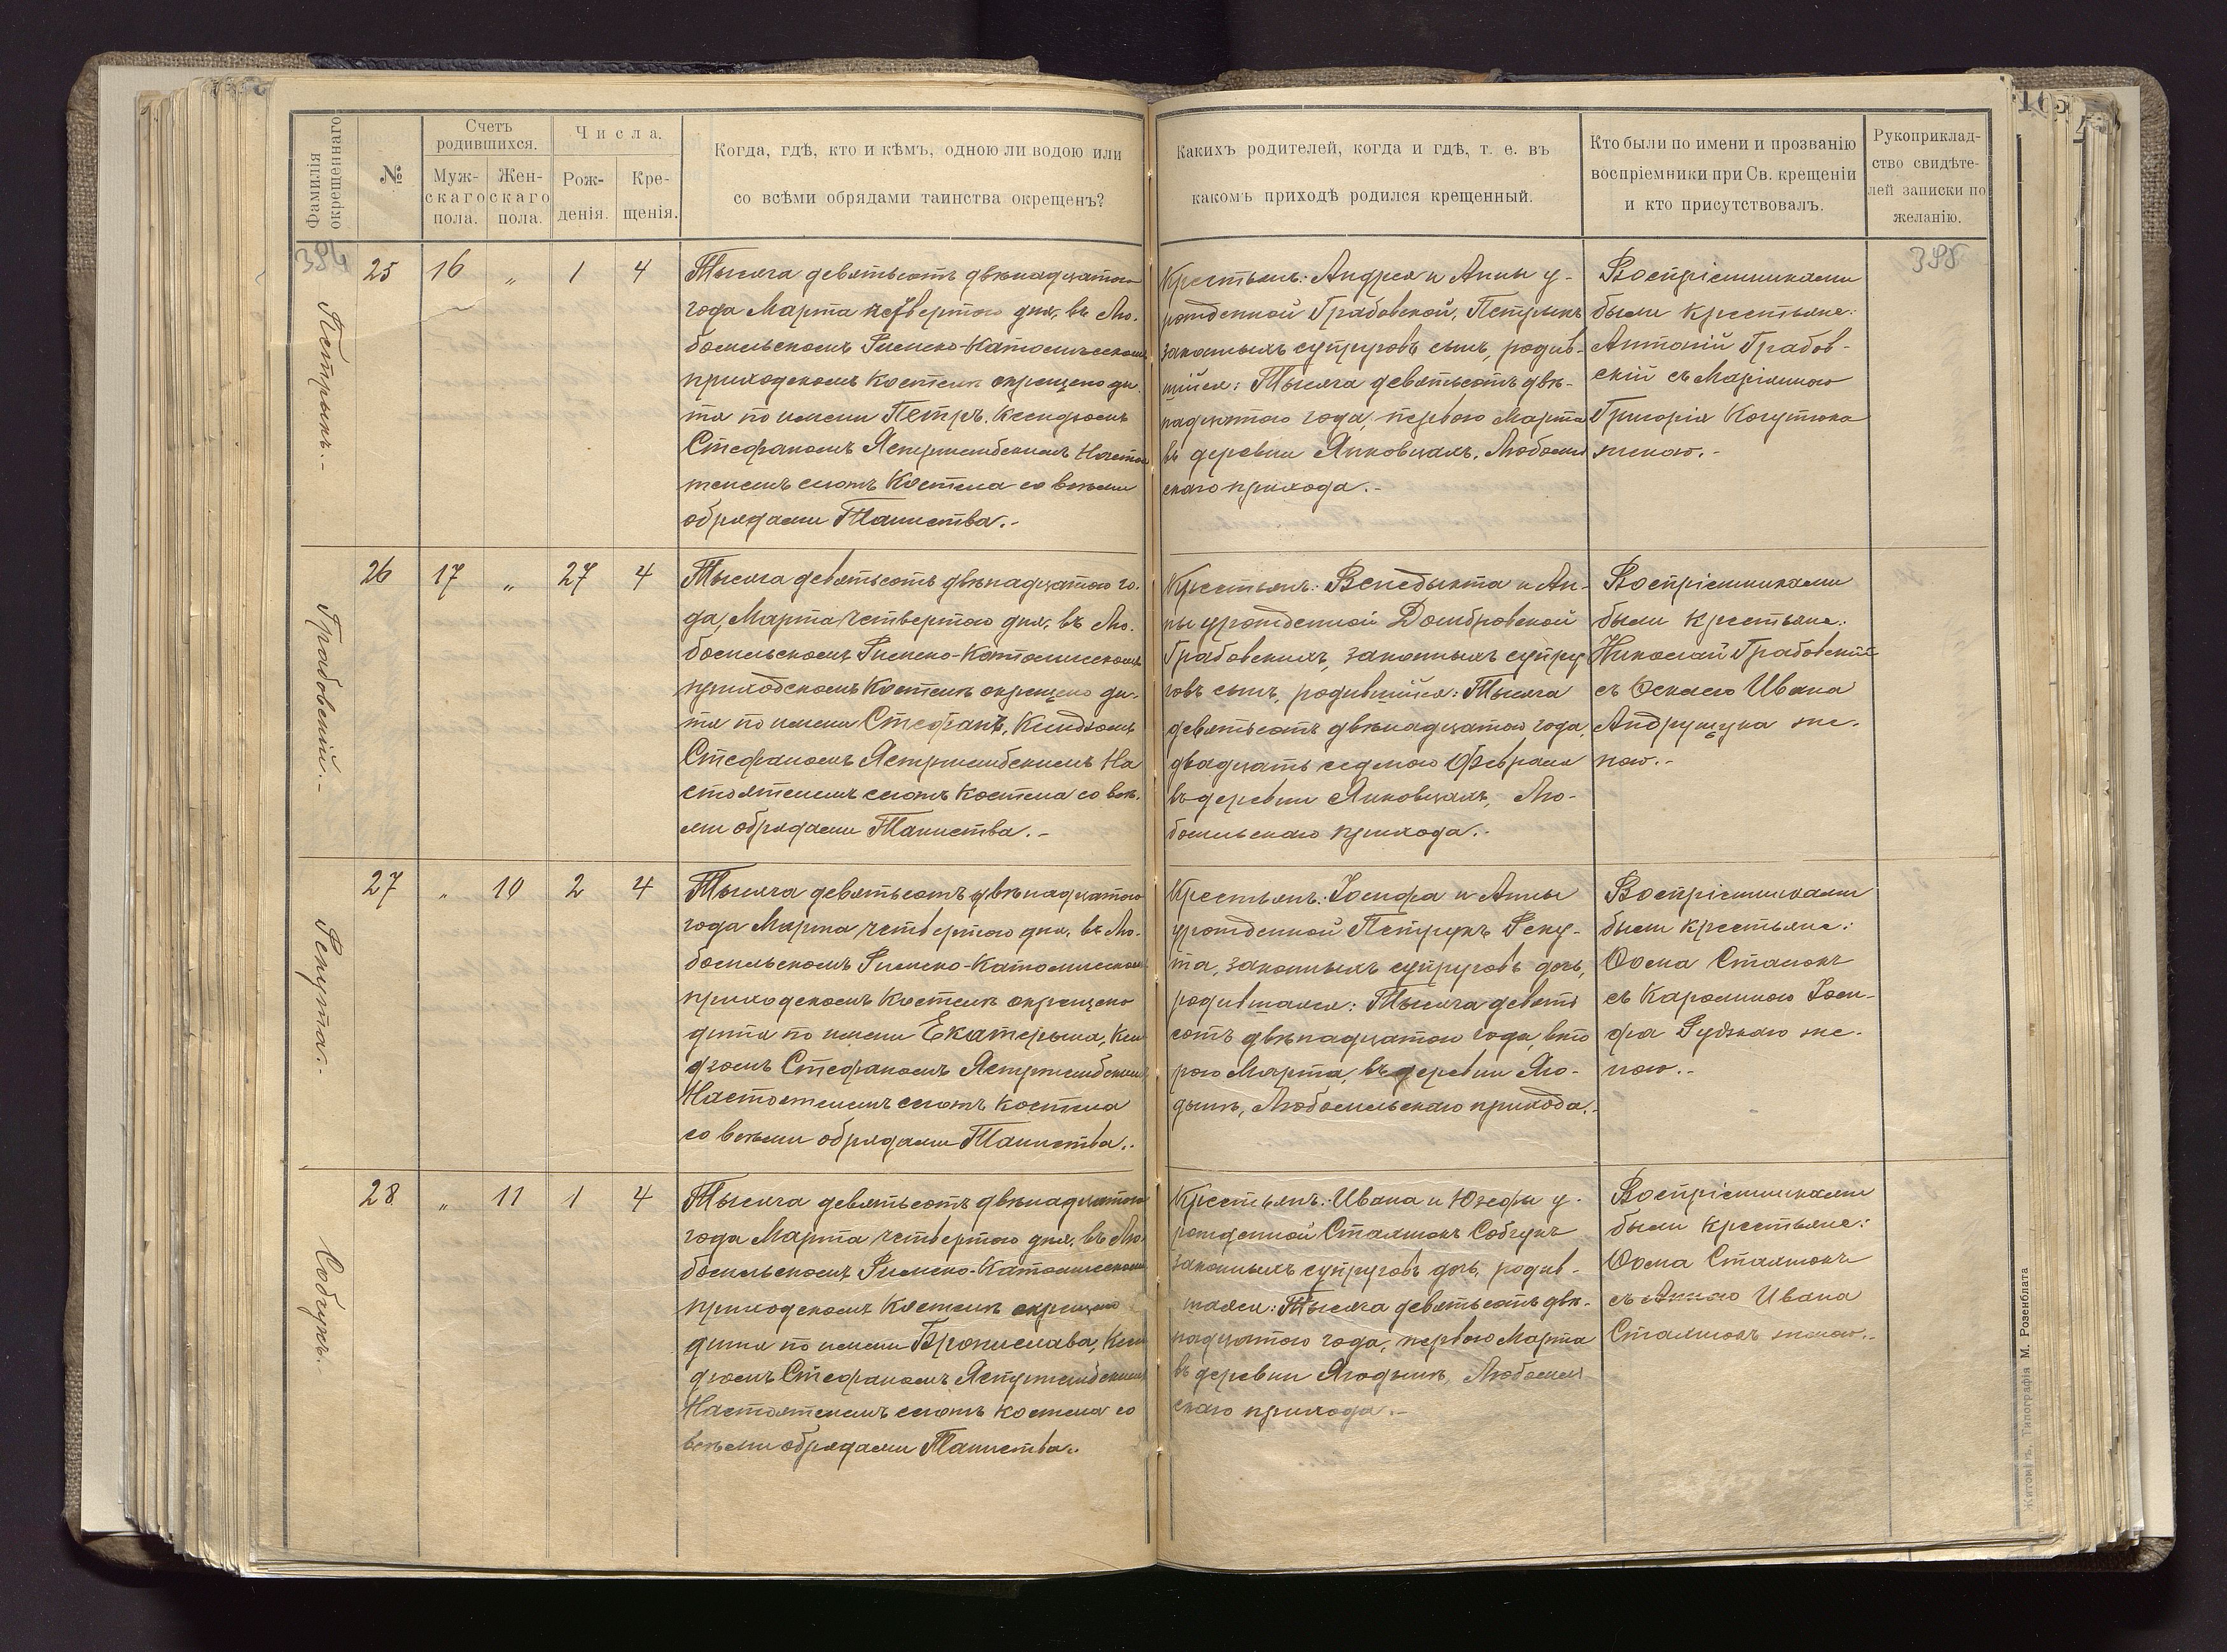 Фамилія окрещеннаго
№
Счетъ родившихся.
Муж-
скаго
пола.
Жен-
скаго
пола.
Числа.
Рож-
денія.
Кре-
щенія.
Когда, гдѣ, кто и кѣмъ, одною ли водою или
со всѣми обрядами таинства окрещенъ?
Какихъ родителей, когда и гдѣ, т. е. въ
какомъ приходѣ родился крещенный.
Кто были по имени и прозванію
воспріемники при Св. крещеніи
и кто присутствовалъ.
Рукоприклад-
ство свидѣте-
лей записки по
желанію.
394
398
Петрикъ.-
25 16 „ 1 4
Тысяча девятьсотъ двѣнадцатого
года Марта четвертого дня, въ Лю-
бомльскомъ Римско-Католическомъ
приходскомъ Костелѣ окрещено ди-
тя по имени Петръ, Ксендзомъ
Стефаномъ Ястржембскимъ Настоя
телемъ сиотъ Костела со всѣми
обрядами Таинства.-
Крестьянъ: Андрея и Анны у-
рожденной Грабовской, Петрикъ
законныхъ супруговъ сынъ, родив-
шійся: Тысяча девятьсотъ двѣ-
надцатого года, первого Марта
въ деревни Янковцахъ, Любомль
скаго прихода.-
Воспріемниками
были крестьяне:
Антоній Грабов-
скій съ Маріянною
Григорія Когутюка
женою.-
Грабовскій.-
26 17 „ 27 4
Тысяча девятьсотъ двѣнадцатого го-
да, Марта четвертого дня, въ Лю-
бомльскомъ Римско-Католическомъ
приходскомъ Костелѣ окрещено ди-
тя по имени Стефанъ, Ксендзомъ
Стефаномъ Ястржембскимъ На
стоятелемъ сиотъ Костела со всѣ-
ми обрядами Таинства.-
Крестьянъ: Венедыкта и Ан-
ны урожденной Домбровской
Грабовскихъ, законныхъ супру
говъ сынъ, родившійся: Тысяча
девятьсотъ двѣнадцатого года,
двадцать седмого Февраля
въ деревни Янковцахъ, Лю-
бомльскаго прихода.-
Воспріемниками
были крестьяне:
Николай Грабовскій
съ Ивана
Андрущука же-
ною.-
Рекута.-
27 „ 10 2 4
Тысяча девятьсотъ двѣнадцатого
года Марта четвертого дня, въ Лю-
бомльскомъ Римско-Католическомъ
приходскомъ Костелѣ окрещено
дитя по имени Екатерына, Ксен
дзомъ Стефаномъ Ястржембскимъ
Настоятелемъ сиотъ Костела
со всѣми обрядами Таинства.-
Крестьянъ: Іосифа и Анны
урожденной Петрукъ Реку-
та, законныхъ супруговъ дочь,
родившаяся: Тысяча девять
сотъ двѣнадцатого года, вто
рого Марта, въ деревни Яго-
дынѣ, Любомльскаго прихода.-
Воспріемниками
были крестьяне:
Ѳома Сталюкъ
съ Каролиною Іоси-
фа же-
ною.-
Собчукъ.
28 „ 11 1 4
Тысяча девятьсотъ двѣнадцатого
года Марта четвертого дня, въ Лю
бомльскомъ Римско-Католическомъ
приходскомъ Костелѣ окрещено
дитя по имени Брониславa, Ксен
дзомъ Стефаномъ Ястржембскимъ
Настоятелемъ сиотъ Костела со
всѣми обрядами Таинства.-
Крестьянъ: Ивана и Юзефы у-
рожденной Сталюкъ Собчукъ
законныхъ супруговъ дочь, родив-
шаяся: Тысяча девятьсотъ двѣ-
надцатого года, первого Марта
въ деревни Ягодынѣ, Любомль
скаго прихода.-
Воспріемниками
были крестьяне:
Ѳома Сталюкъ
съ Анною Ивана
Сталюкъ женою.-
Житомiръ, Типографія М. Розенблата